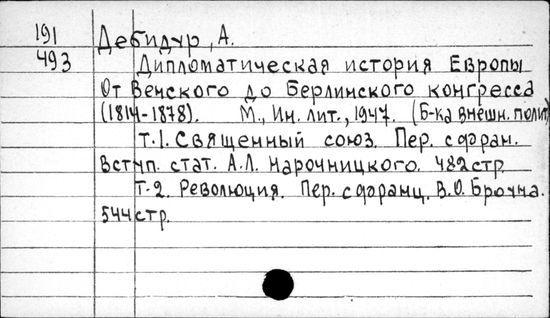 191
493
Дебидур, А.
Дипломатическая история Европы
От Венского до Берлинского конгресса
(1814-1878). М., Ин. лит., 1947. (Б-ка внешн. полит
Т.1. Священный союз. Пер. с фран.
Вступ. стат. А.Л. Нарочницкого. 482 стр.
Т-2. Революция. Пер. с франц. В.О.
544 стр.